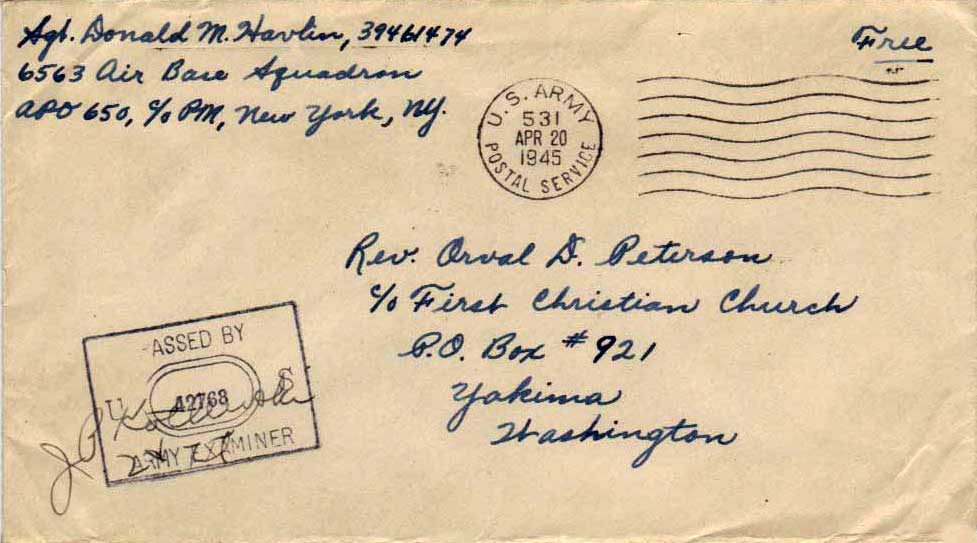 Sgt. Donald M. Havlin, 39461474
6563 Air Base Squadron
APO 650, c/o PM, New York, NY.
Free
U.S. ARMY
531
APR 20
1945
POSTAL SERVICE
Rev. Orval D. Peterson
c/o First Christian Church
P.O. Box # 921
Yakima
Washington
ASSED BY
U S
42768
ARMY EXAMINER